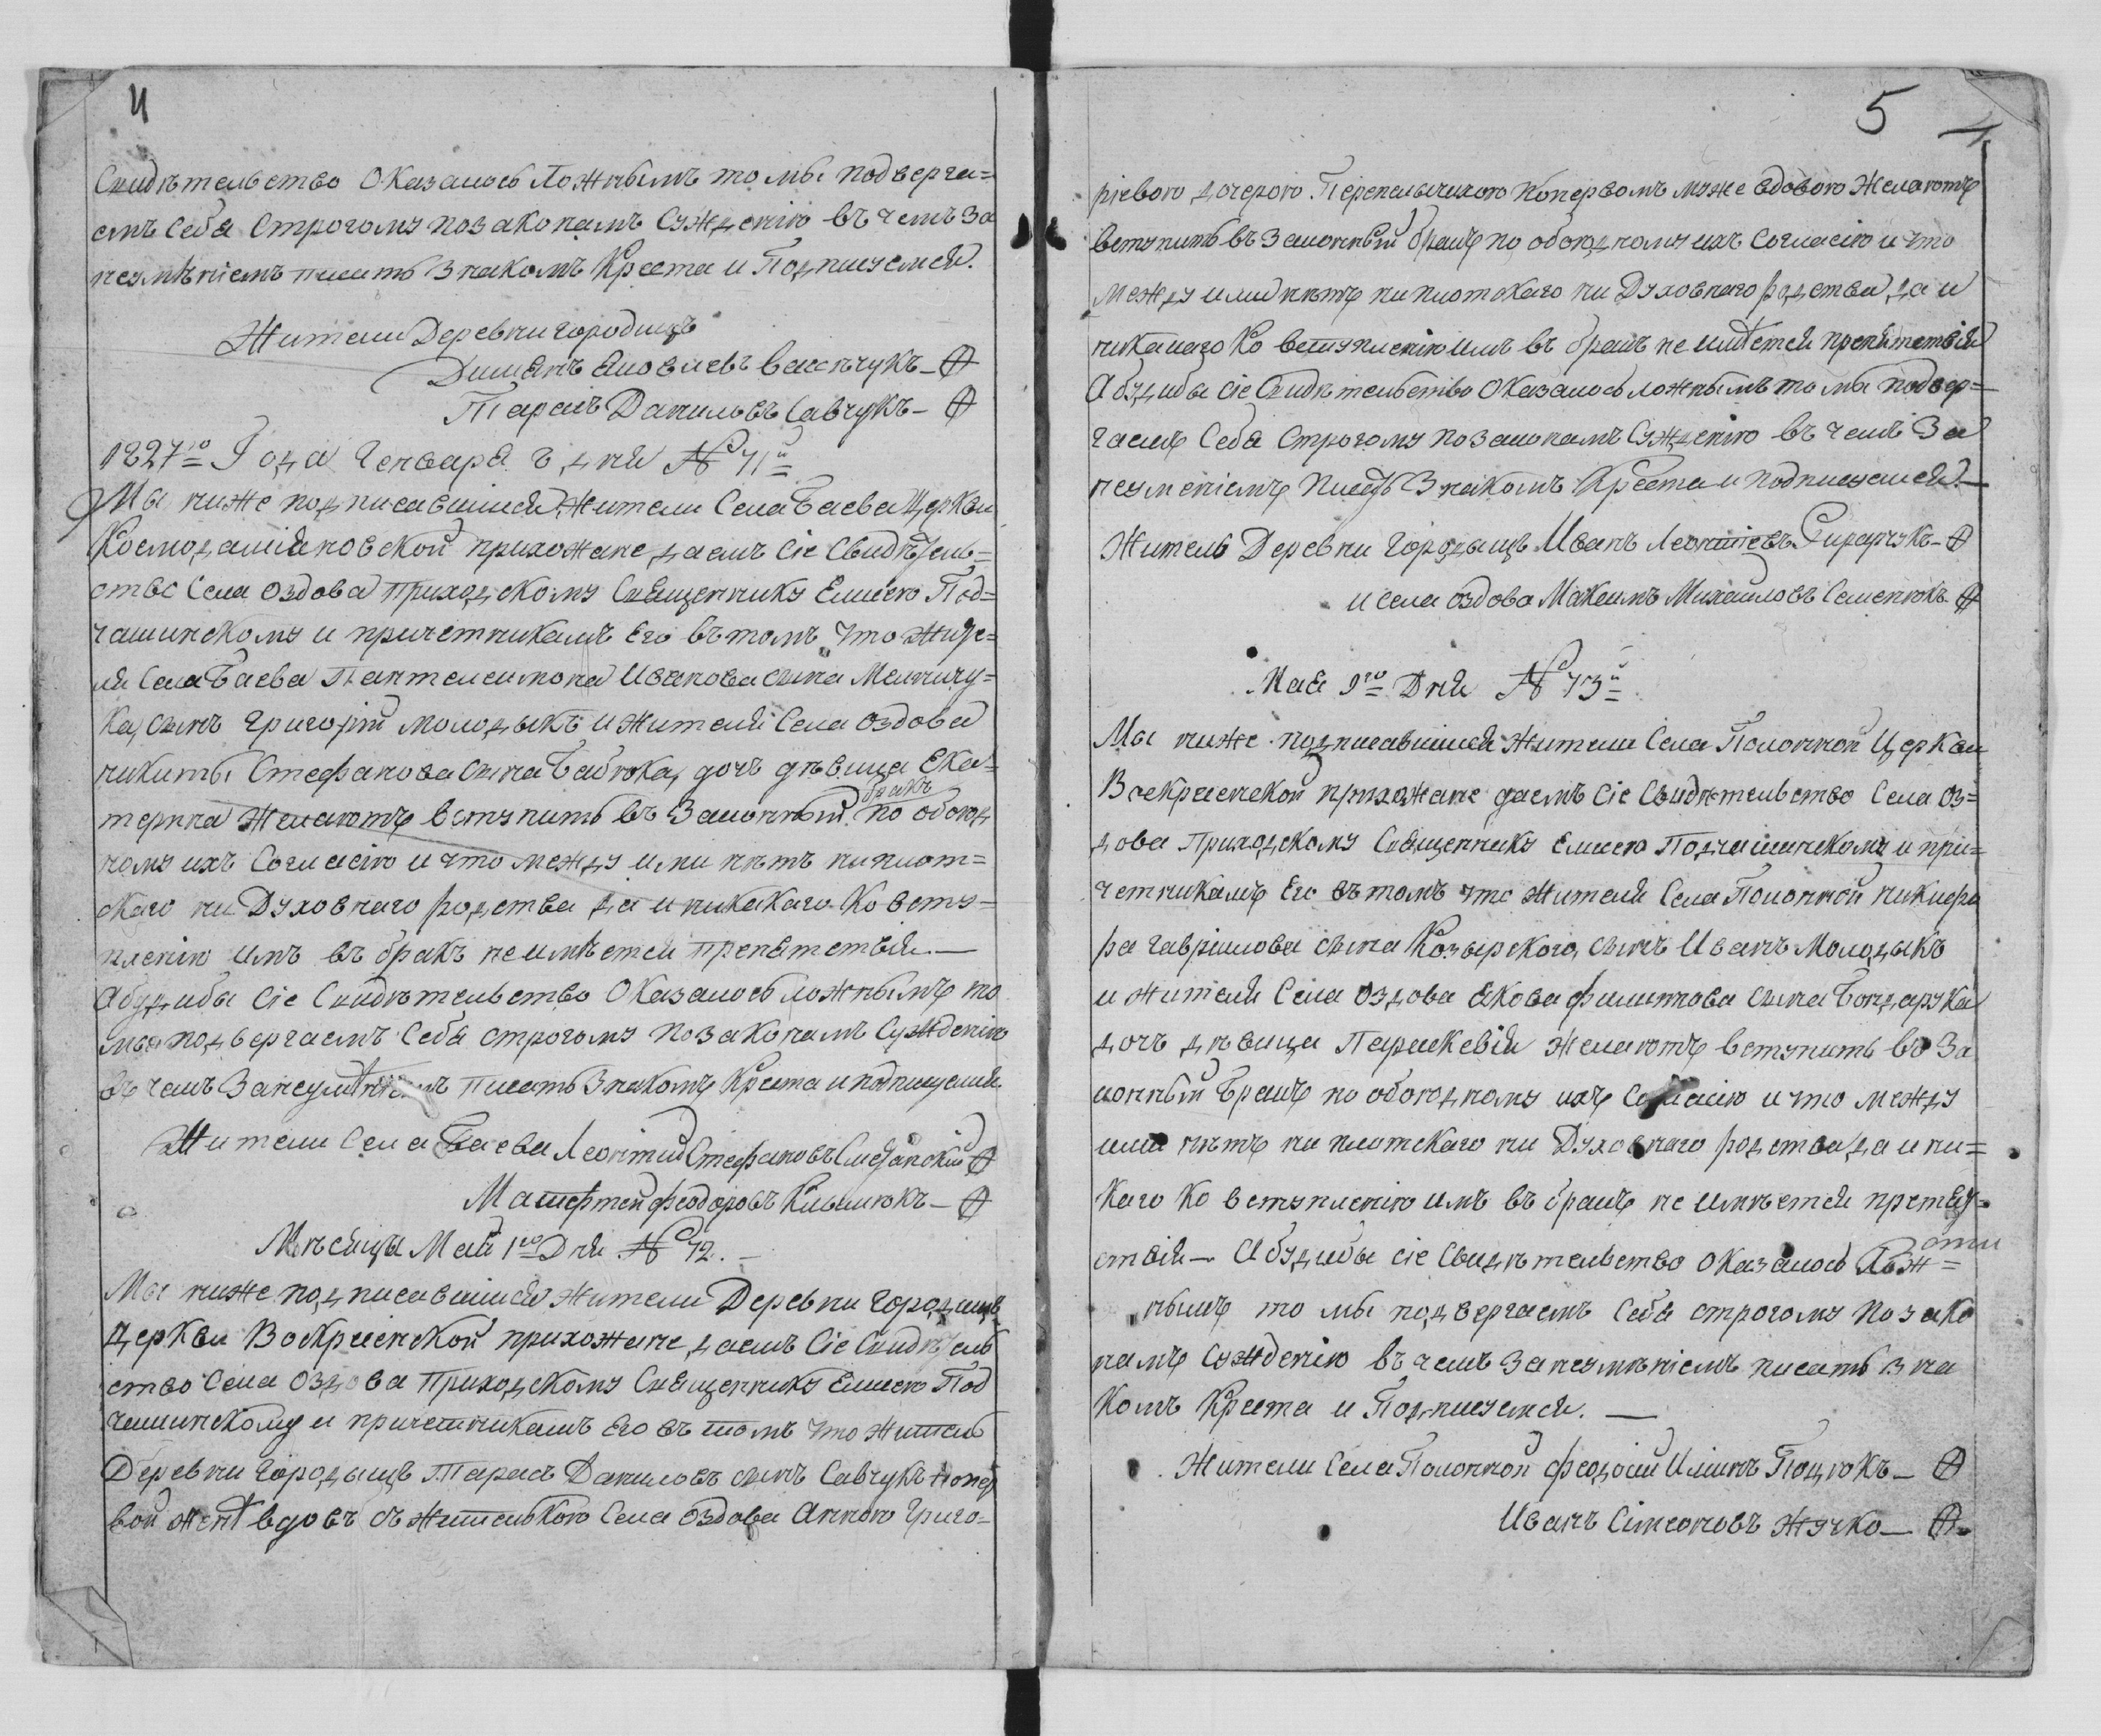 4
Свидѣтельство Оказалось Ложнымъ то мы подверга=
емъ себя Строгому по законамъ Сужденію въ чемъ За
неумѣніемъ писать Знакомъ Креста и Подписуемся.
Жители Деревни городищъ
Димянъ Яковлевъ
Тарасъ Данильевъ Савчукъ
1827го Года Генваря дня № 11й
Мы ниже подписавшіися Жители Села Баева Церкви
Космодаміяновской прихожане даемъ Сіе Свидѣтель=
ство Села Оздова Приходскому Священнику Елисею Под=
чашинскому и причетникамъ Его въ томъ что Жите=
ля Села Баева Пантелеимона Иванова сына Мельничу=
ка, сынъ Григорій молодыкъ и жителя Села Оздова
Никиты Стефанова Сына Бабюка, дочъ дѣвица Ека=
бракъ
терина Желаютъ вступить въ Законный по обоюд
ному ихъ Согласію и что между ими нѣтъ ни плот=
скаго ни Духовнаго родства да и никакаго Ко всту=
пленію имъ въ бракъ не имѣется препятствія.—
А будибы Сіе Свидѣтельство Оказалось ложнымъ то
мы подвергаемъ Себя строгому по законамъ Сужденію
въ чемъ За неумѣніемъ писать Знакомъ Креста и подписуемся
Жители Села Баева Леонтій Стефановъ
Федоровъ
Мѣсяца Маія 1го Дня № 12.—
Мы ниже подписавшіися Жители Деревни Городищъ
Церкви Воскрисенской прихожане даемъ Сіе Свидѣтель
ство Села Оздова Приходскому Священнику Елисею Под
чашинскому и причетникамъ Его въ томъ что житель
Деревни Городищъ Тарасъ Даниловъ сынъ Савчукъ по пер
вой женѣ вдовъ съ жителькою Села Оздова Анною Григо=
5
ріевою дочерою по первомъ мужѣ вдовою Желаютъ
вступить въ Законный бракъ по обоюдному ихъ Согласію и что
между ими нѣтъ ни плотскаго ни Духовнаго родства, да и
никакаго Ко вступленію имъ въ бракъ не имѣется препятствія
А будибы сіе Свидѣтельство Оказалось ложнымъ то мы подвер=
гаемъ Себя Строгому по законамъ Сужденію въ чемъ За
неуменіемъ Писать Знакомъ Креста и подписуемся.—
Житель Деревни Городыщъ Иванъ
и села Оздова Максимъ Михаиловъ Семенюкъ
Мая 9го Дня № 13й
Мы ниже подписавшіися жители Села Полонной Церкви
Воскрисенской прихожане даемъ Сіе Свидѣтельство Села Оз=
дова Приходскому Священнику Елисею Подчашинскому и при=
четникамъ Его въ томъ что жителя Села Полонной Никифо
ра Гавріилова сына Козырского, сынъ Иванъ Молодыкъ
и жителя Села Оздова Якова Филиппова сына Бондарука
дочъ дѣвица Параскевія Желаютъ вступить въ За
конный Бракъ по обоюдному ихъ Согласію и что между
ими нѣтъ ни плотскаго ни Духовнаго родства да и ни=
Каго Ко вступленію имъ въ бракъ не имѣется препят=
ствія— А будибы сіе Свидѣтельство Оказалось Лож=
нымъ то мы подвергаемъ Себя строгому по зако
намъ Сужденію въ чемъ За неумѣніемъ писать Зна
Комъ Креста и Подписуемся.—
Жители Села Полонной Феодосій Илиинъ
Иванъ Симеоновъ Жучко